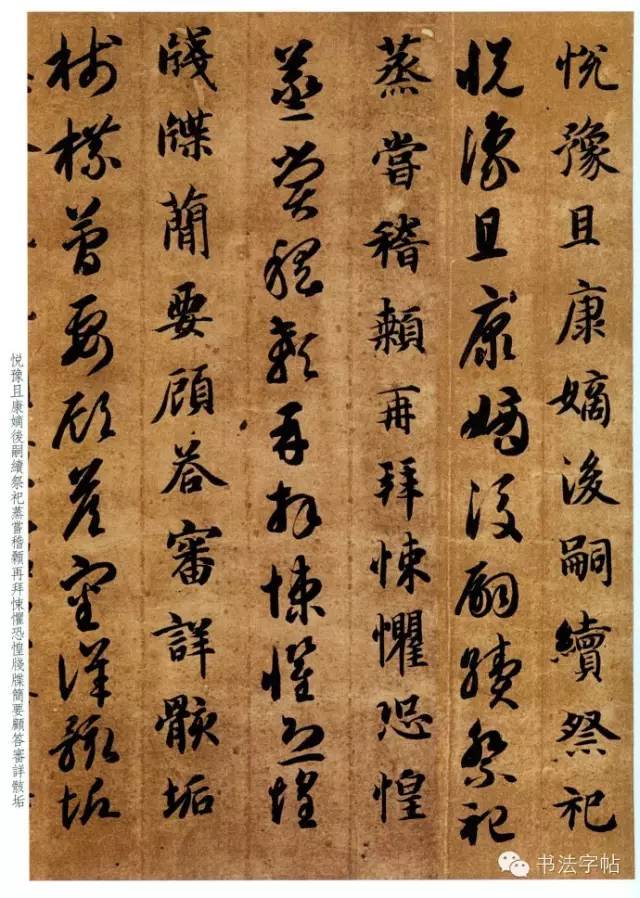 悅豫且康嫡後嗣續祭祀
悅豫且康嫡後嗣續祭祀
蒸嘗稽顙再拜悚懼恐惶
蒸嘗稽顙再拜悚懼恐惶
牋牒簡要顧答審詳骸垢
牋牒簡要顧答審詳骸垢
悅豫且康嫡後嗣續祭祀蒸嘗稽顙再拜悚懼恐惶牋牒簡要顧答審詳骸垢
书法字帖